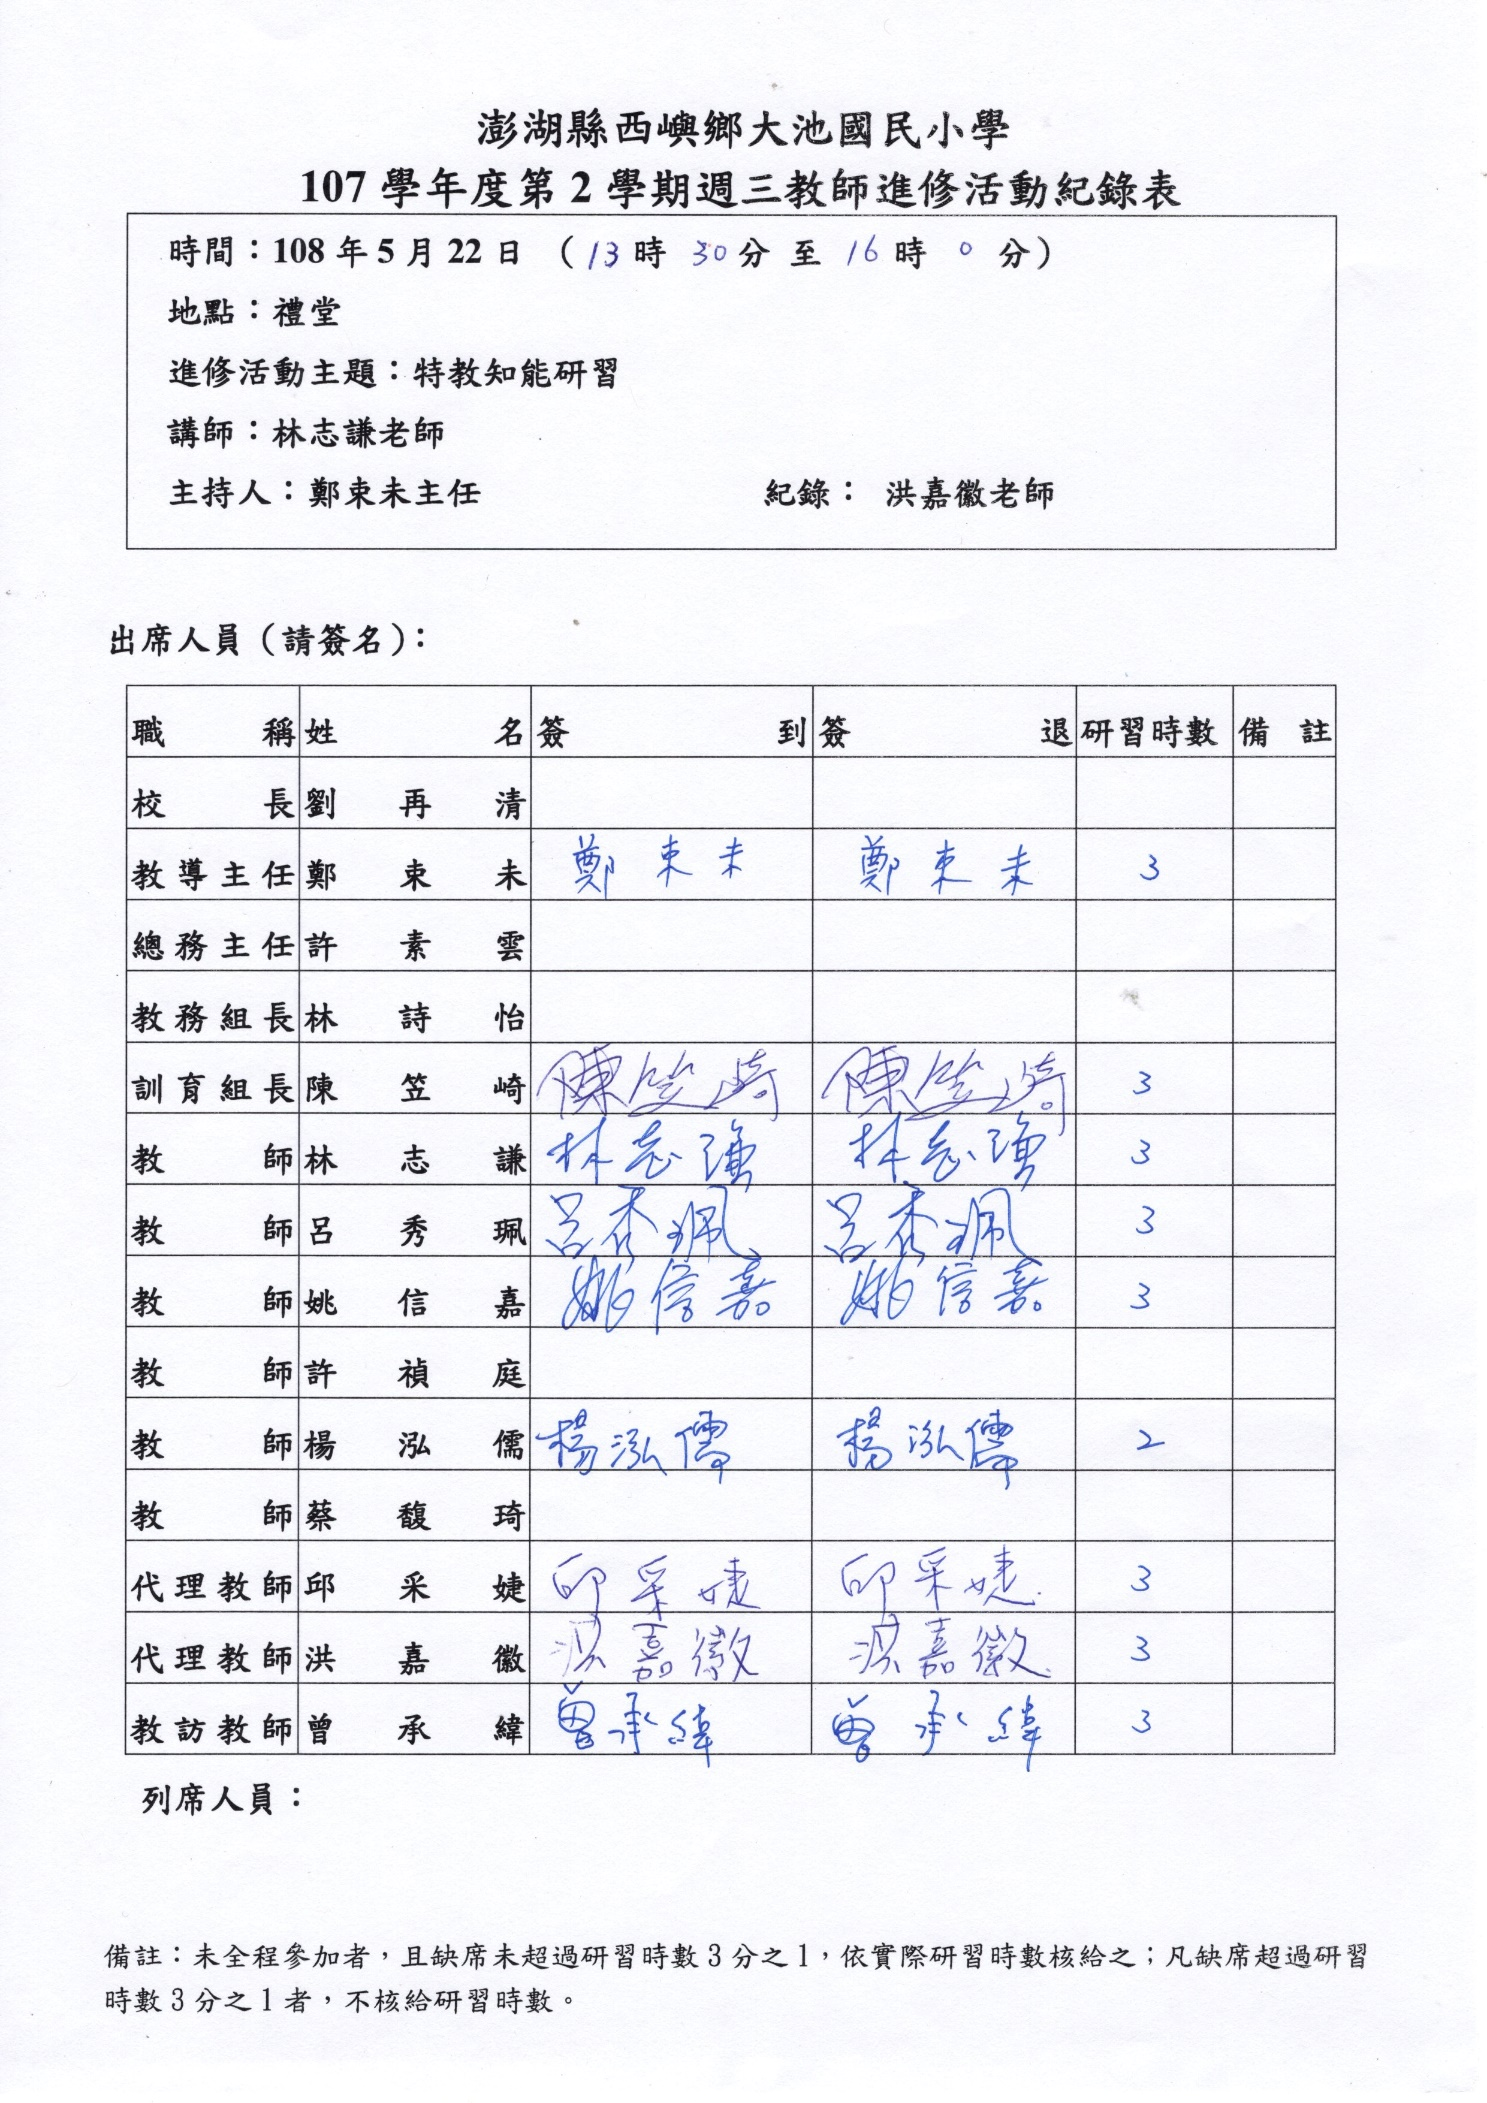 澎湖縣西嶼鄉大池國民小學
107 學年度第 2 學期週三教師進修活動紀錄表
時間：108 年 5 月 22 日 （13 時 30 分 至 16 時 0 分）
地點：禮堂
進修活動主題：特教知能研習
講師：林志謙老師
主持人：鄭束未主任 紀錄： 洪嘉徽老師
出席人員（請簽名）：
職稱 姓名 簽到 簽退 研習時數 備註
校長 劉再清
教導主任 鄭束未 鄭束未 鄭束未 3
總務主任 許素雲
教務組長 林詩怡
訓育組長 陳笠崎 陳笠崎 陳笠崎 3
教師 林志謙 林志謙 林志謙 3
教師 呂秀珮 呂秀珮 呂秀珮 3
教師 姚信嘉 姚信嘉 姚信嘉 3
教師 許禎庭
教師 楊泓儒 楊泓儒 楊泓儒 2
教師 蔡馥琦
代理教師 邱采婕 邱采婕 邱采婕 3
代理教師 洪嘉徽 洪嘉徽 洪嘉徽 3
教訪教師 曾承緯 曾承緯 曾承緯 3
列席人員：
備註：未全程參加者，且缺席未超過研習時數 3 分之 1，依實際研習時數核給之；凡缺席超過研習
時數 3 分之 1 者，不核給研習時數。